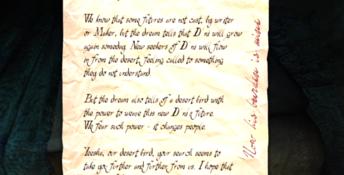 We know that some futures are not cast, by writer
or Maker, but the dream tells that D'ni will grow
again someday. New seekers of D'ni will flow
in from the desert, feeling called to something
they do not understand.
But the dream also tells of a desert bird with
the power to weave this new D'ni's future.
We fear such power - it changes people.
Yeesha, our desert bird, your search seems to
take you further and further from us. I hope that
Now his burden is mine